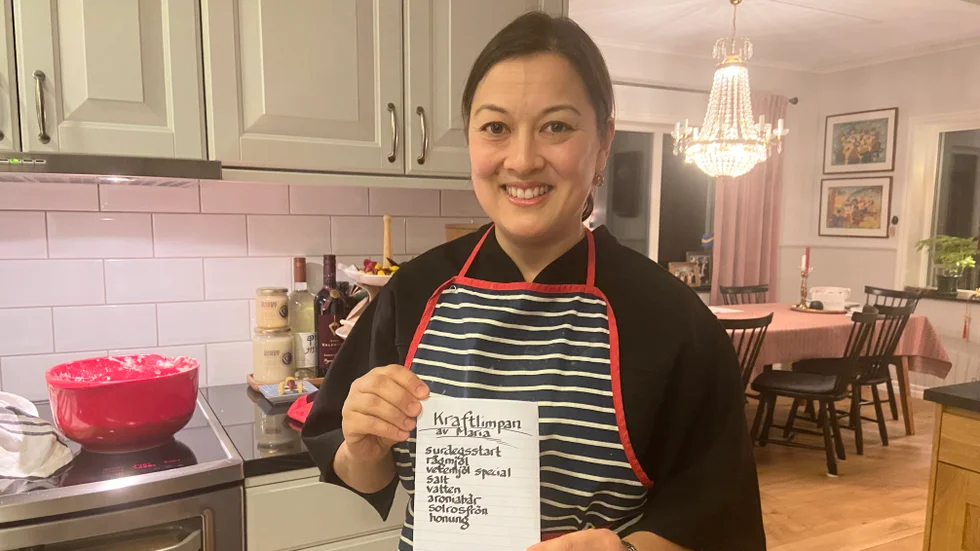 Kraftlimpan
av Maria
surdegsstart
rågmjöl
vetemjöl special
salt
vatten
aroniabär
solrosfrön
honung